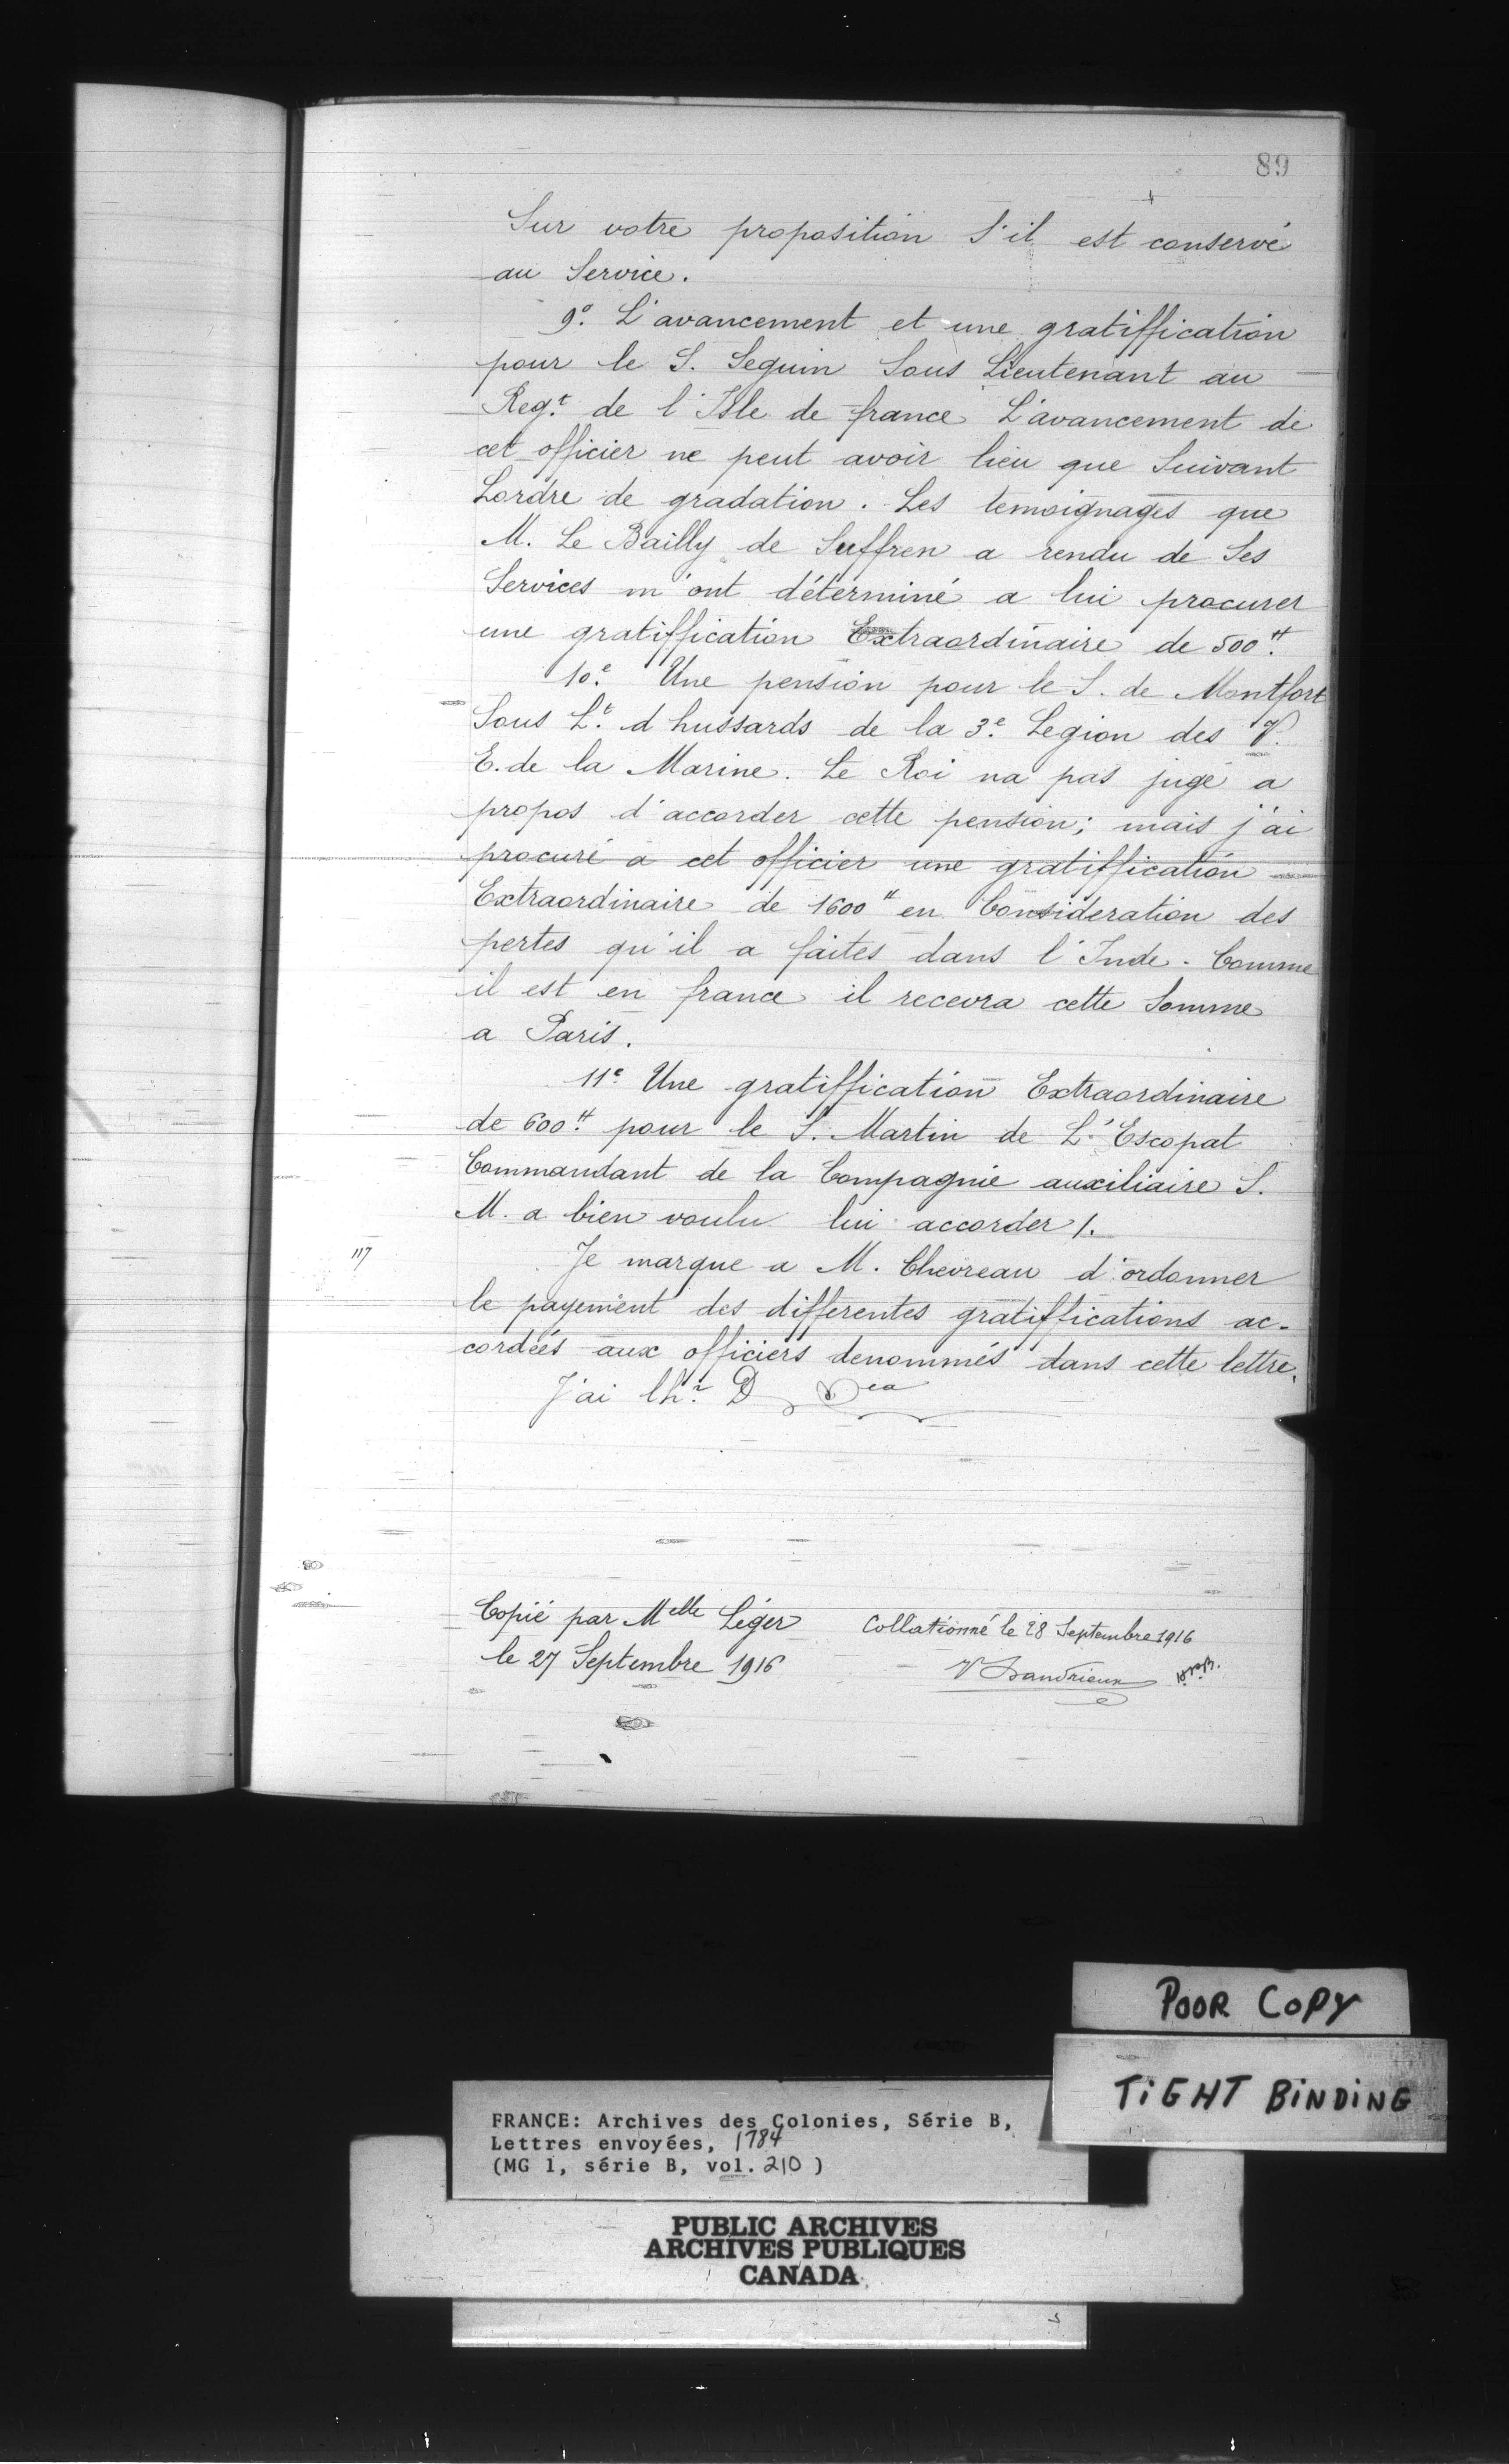 89
Sur votre proposition S'il est conservé
au Service.
9º. L'avancement et une gratiffication
pour le S. Seguin Sous Lieutenant au
Reg.t de l'Isle de france L'avancement de
cet officier ne peut avoir lieu que Suivant
Lordre de gradation. Les temoignages que
M. Le Bailly de Suffren a rendu de Ses
Services m'ont déterminé a lui procurer
une gratiffication Extraordinaire de 500.tt
10.e Une pension pour le S. de Montfort
Sous L.t d hussards de la 3.e Legion des V.
E. de la Marine. Le Roi na pas jugé a
propos d'accorder cette pension; mais j'ai
procuré a cet officier une gratiffication
Extraordinaire de 1600 tt en Consideration des
pertes qu'il a faites dans l'Inde. Comme
il est en france il recevra cette Somme
a Paris.
11.e Une gratiffication Extraordinaire
de 600.tt pour le S. Martin de L'Escopat
Commandant de la Compagnie auxiliaire S.
M. a bien voulu lui accorder /.
117
Je marque a M. Chevreau d'ordonner
le payement des differentes gratiffications ac-
cordées aux officiers denommés dans cette lettre.
J'ai lh.r D
Copié par Melle Léger
le 27 Septembre 1916
Collationné le 28 Septembre 1916
POOR COPY
TIGHT BINDING
FRANCE: Archives des Colonies, Série B,
Lettres envoyées, 1784
(MG 1, série B, vol. 210 )
PUBLIC ARCHIVES
ARCHIVES PUBLIQUES
CANADA